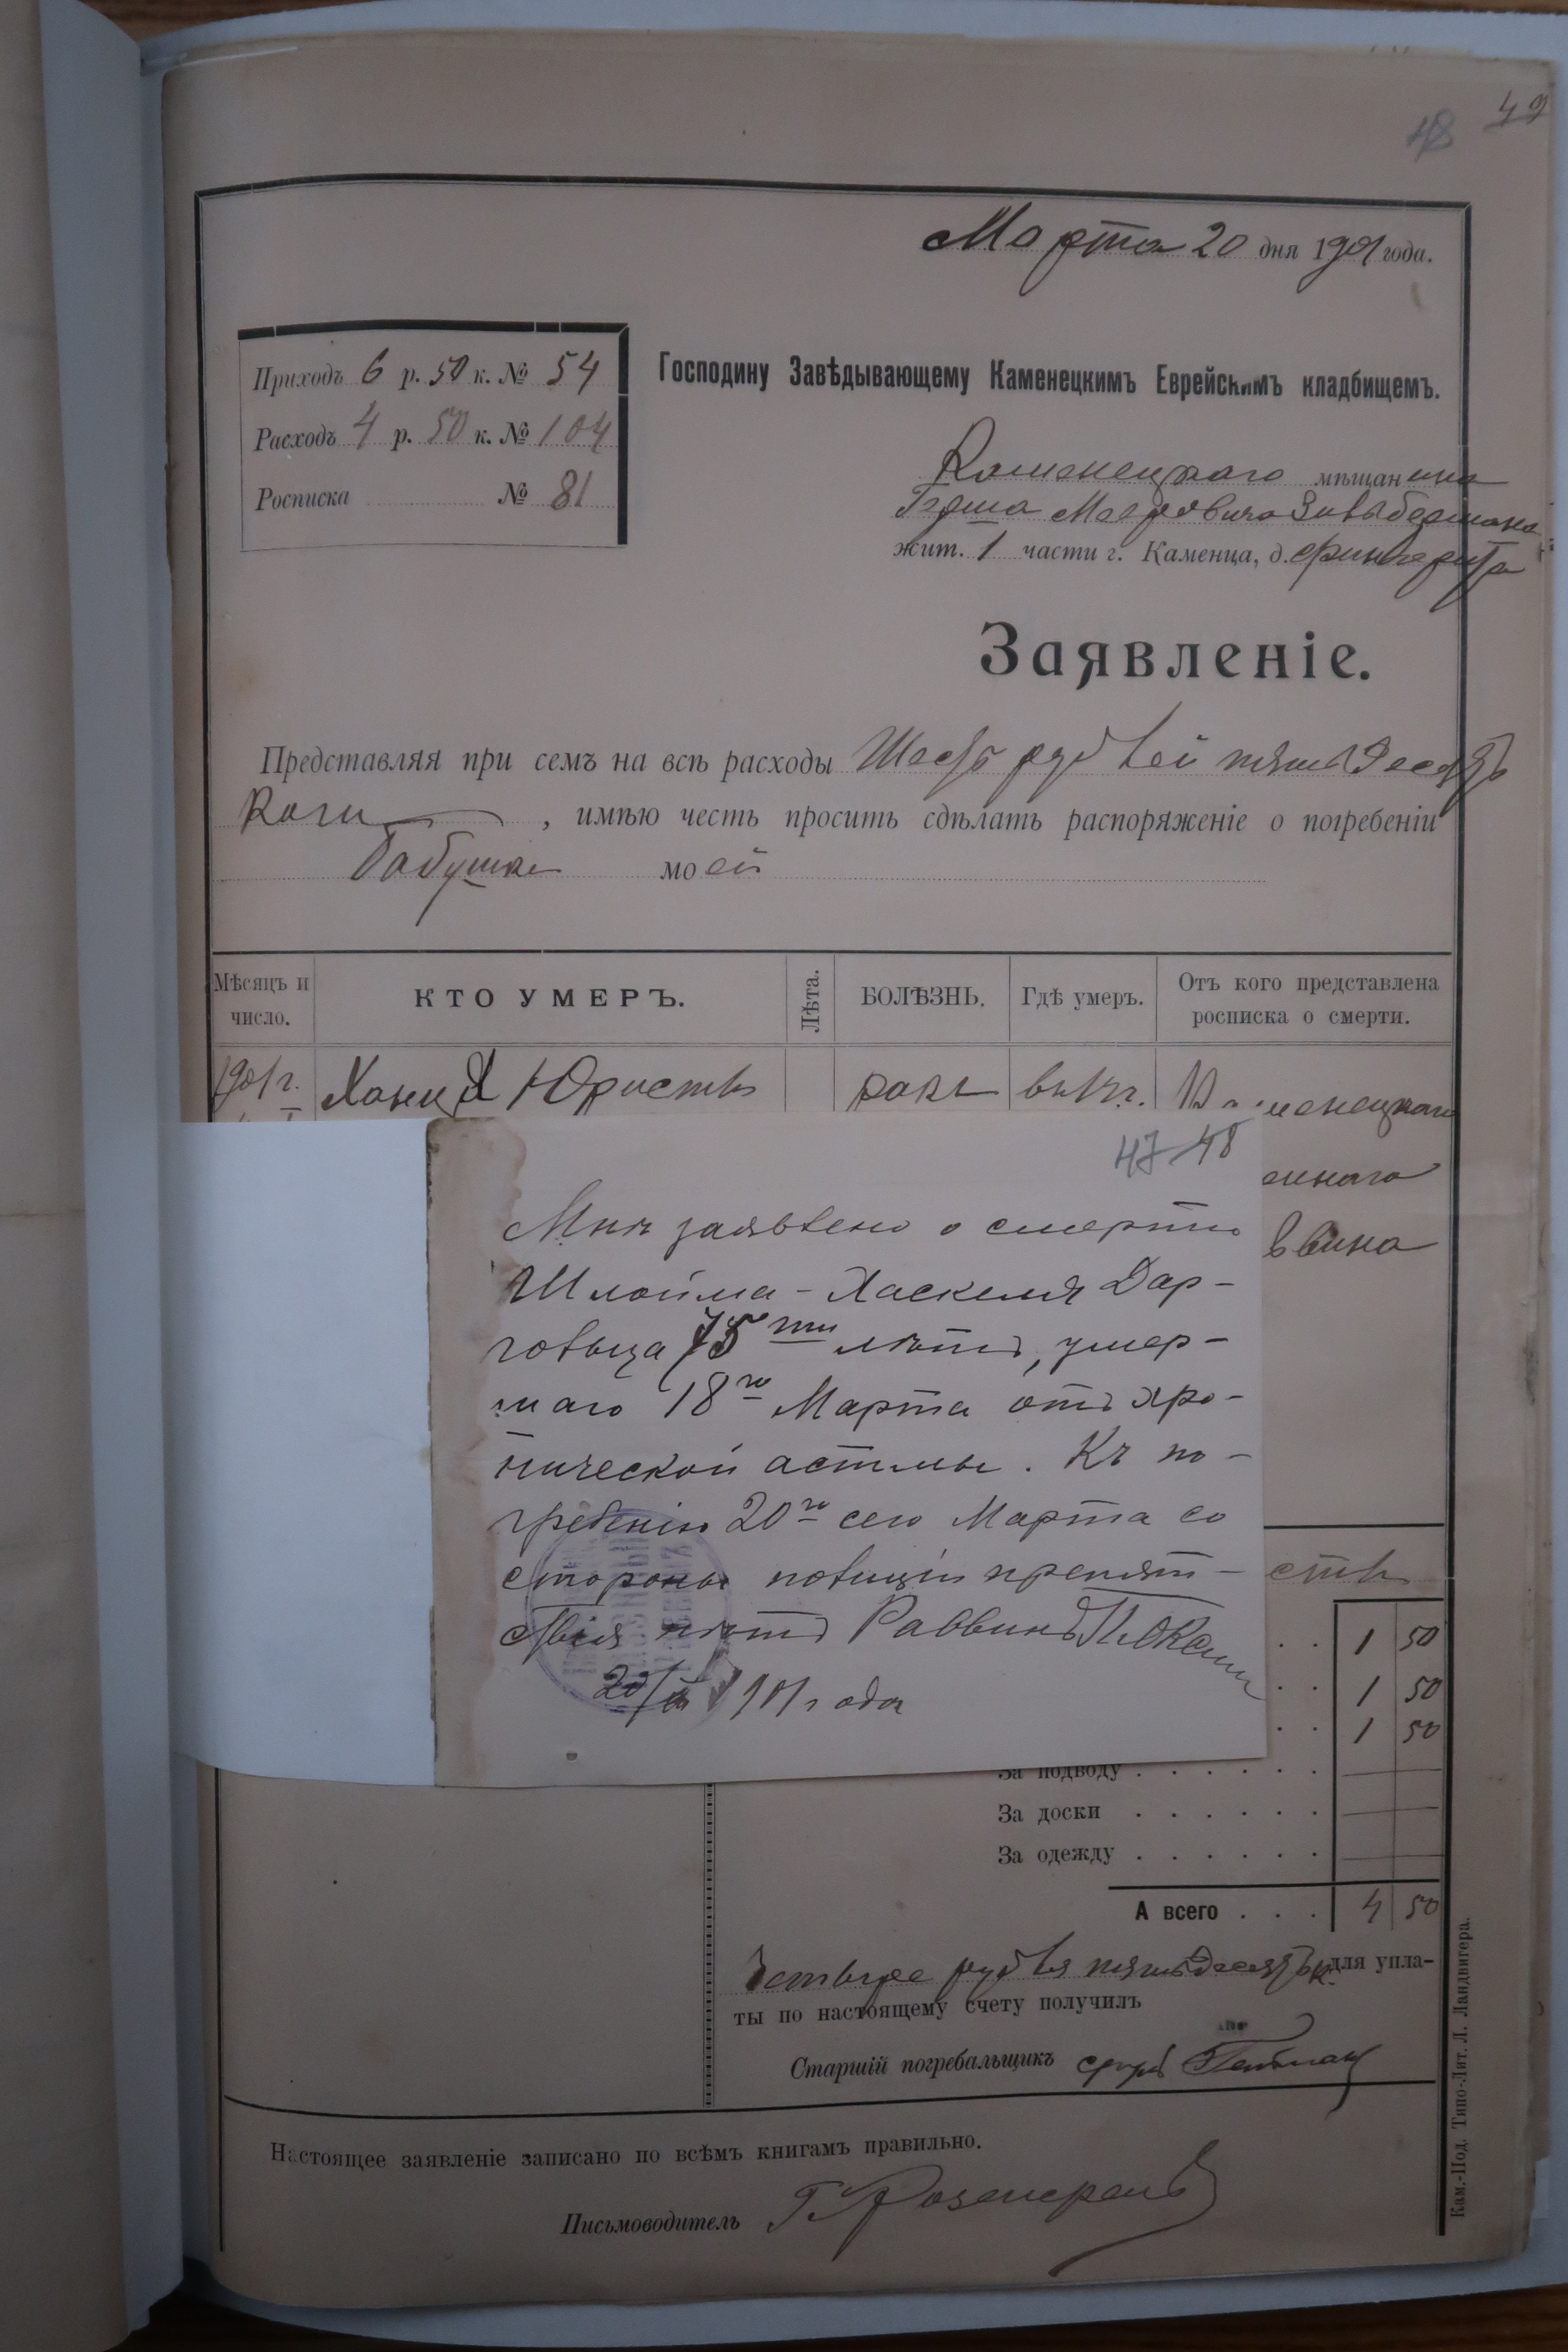 49
48
Марта 20 дня 1901 года.
Приходъ 6 р. 50 к. № 54
Расходъ 4 р. 50 к. № 104
Росписка № 81
Господину Завѣдывающему Каменецкимъ Еврейскимъ кладбищемъ.
Каменецкаго мѣщанина
Герша Мееровича Зильбермана
жит. 1 части г. Каменца, д.
Заявленіе.
Представляя при семъ на всѣ расходы Шесть рублей пятьдесятъ
Коп , имѣю честь просить сдѣлать распоряженіе о погребеніи
бабушки моей
Мѣсяцъ и число.
КТО УМЕРЪ.
Лѣта.
БОЛѢЗНЬ.
Гдѣ умеръ.
Отъ кого представлена росписка о смерти.
1901 г. Юристъ ракъ Каменецкаго
47 48
Мнѣ заявлено о смерти
Шлойма-Хаскеля Дар-
говица 75ти лѣтъ, умер-
шаго 18го Марта отъ хро-
нической астмы. Къ по-
гребенію 20го сего Марта со
стороны полиціи препят-
ствія нѣтъ Раввинъ
1901 года
еннаго
ввина
1 50
1 50
1 50
За подводу . . . . . .
За доски . . . . . .
За одежду . . . . . .
А всего . . . 4 50
Четыре рубля пятьдесятъ к. для упла-
ты по настоящему счету получилъ
Старшій погребальщикъ
Настоящее заявленіе записано по всѣмъ книгамъ правильно.
Письмоводитель
Кам.-Под. Типо-Лит. Л. Ландвигера.